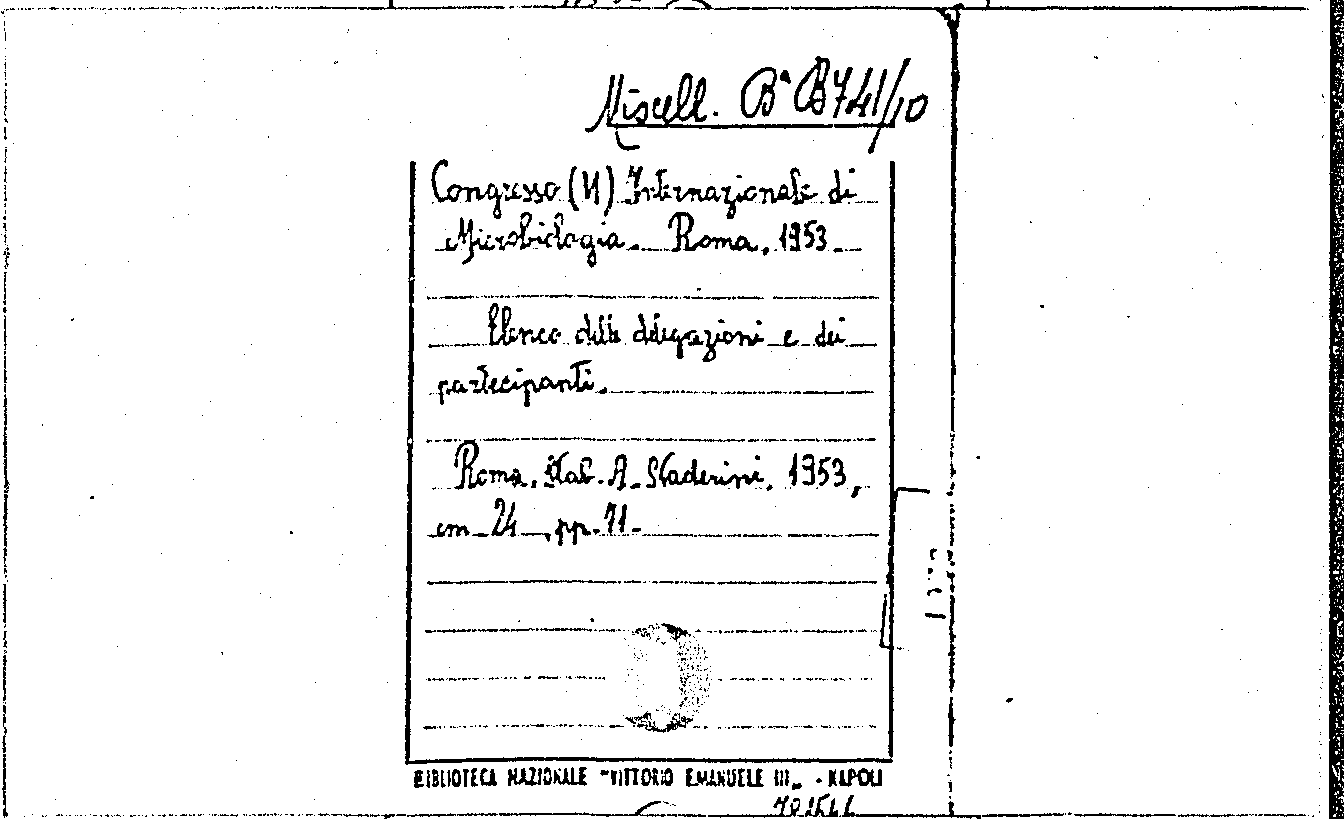 Miscell. Bª B741/10
Congresso (VI) Internazionale di
Microbiologia. Roma, 1953.
Elenco delle delegazioni e dei
partecipanti.
Roma, Stab. A. Staderini, 1953,
cm 24, pp. 71.
BIBLIOTECA NAZIONALE "VITTORIO EMANUELE III„ - NAPOLI